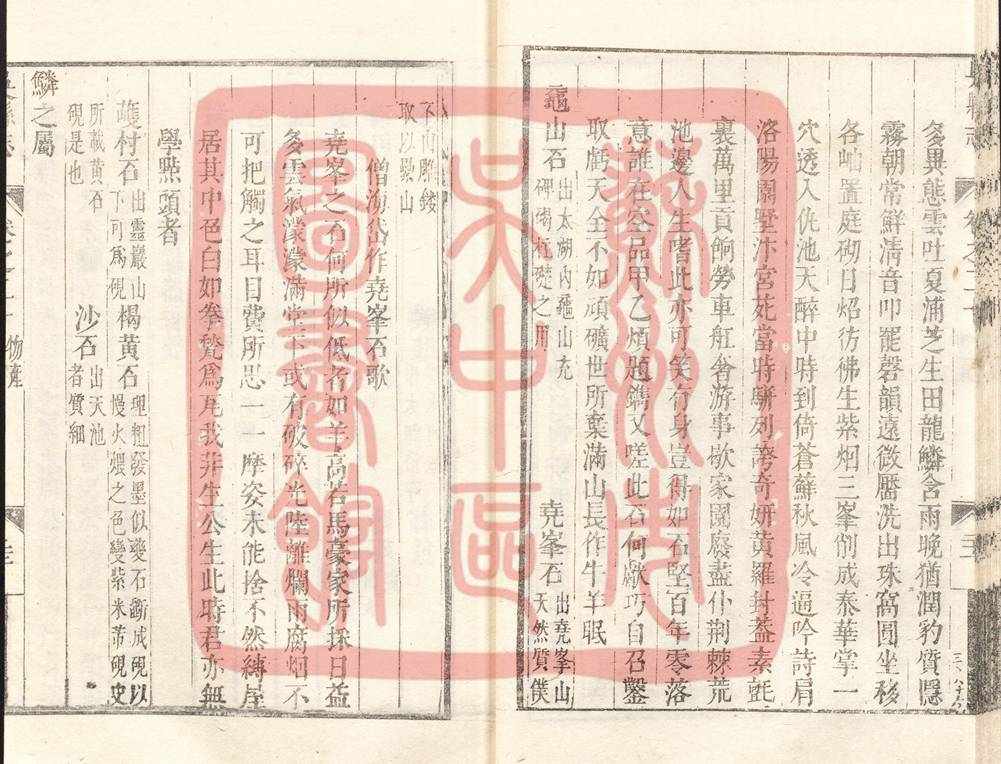 多異態雲吐夏浦芝生田龍鱗含雨晚猶潤豹質隱
霧朝常鮮清音叩罷磬韻遠微靨洗出珠窩圓坐移
各岫置庭砌日炤彷彿生紫烟三峯削成泰華掌一
穴透入仇池天醉中時到倚蒼蘚秋風冷逼吟詩肩
洛陽園墅汴宮苑當時駢列誇奇妍黃羅封蓋素氈
裹萬里貢餉勞車舡舍游事歇家園廢盡仆荆棘荒
池邊人生嗜此亦可笑有身豈得如石堅百年零落
意誰在空品甲乙煩題鐫又嗟此石何厭巧自召鑿
取虧天全不如頑礦世所棄滿山長作牛羊眠
龜山石 出太湖內龜山充碑碣柱礎之用
堯峯石 出堯峯山天然質僕
不由雕鏤取以壘山
僧淘岱作堯峯石歌
堯峯之石何所似低者如羊高若馬豪家所採日益
多雲氣濛濛滿堂下或有破碎光陸離爛雨腐烟不
可把觸之耳目費所思一一摩姿未能捨不然縛屋
居其中色白如拳甃爲瓦我非生公生此時君亦無
學㸃頭者
蠖村石 出靈巖山下可爲硯
楬黃石 理粗發墨似夔石斵成硯以慢火煨之色變紫米芾硯史
所載黃石硯是也
沙石 出天池者質細
鱗之屬
吳縣志
卷之二十
物產
蘇州市吳中區圖書館